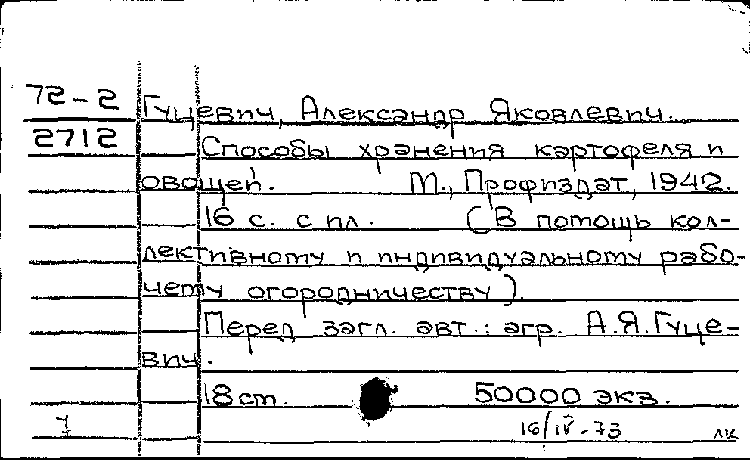 72-2 Гуцевич, Александр Яковлевич.
2712 Способы хранения картофеля и
овощей. М., Профиздат, 1942.
16 с. с ил. (В помощь кол-
лективному и индивидуальному рабо-
чему огородничеству).
Перед загл. авт.: агр. А.Я.Гуце-
вич.
18 ст. 50000 экз.
16/IV-73 лк